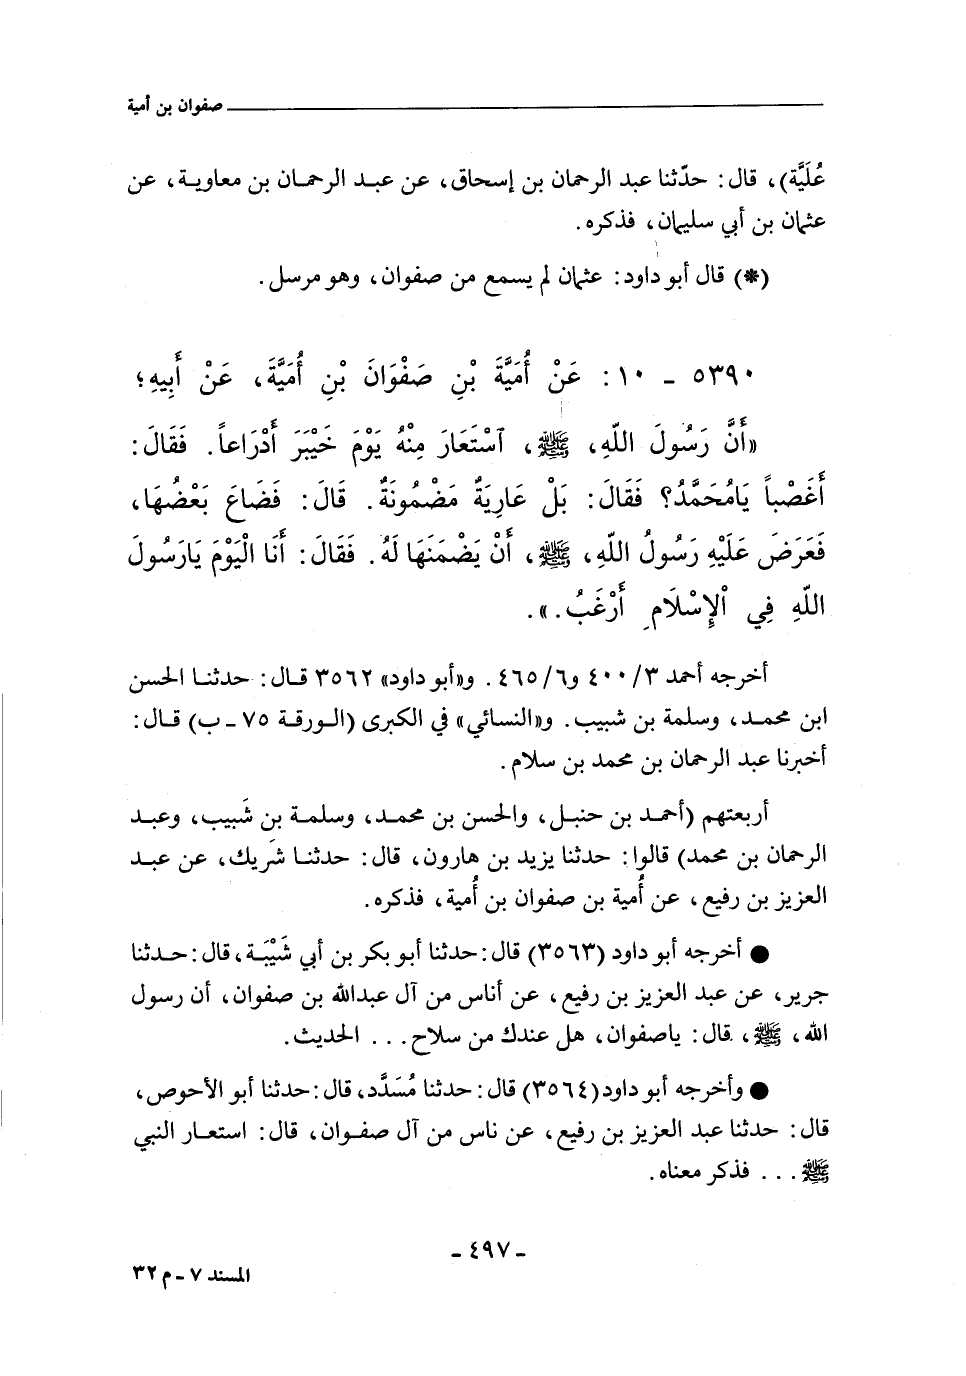 صفوان بن أمية
عُلَيَّة)، قال: حدّثنا عبد الرحمان بن إسحاق، عن عبد الرحمان بن معاوية، عن
عثمان بن أبي سليمان، فذكره.
(*) قال أبو داود: عثمان لم يسمع من صفوان، وهو مرسل.
٥٣٩٠ - ١٠: عَنْ أُمَيَّةَ بْنِ صَفْوَانَ بْنِ أُمَيَّةَ، عَنْ أَبِيهِ؛
«أَنَّ رَسُولَ اللهِ، ﷺ، آسْتَعَارَ مِنْهُ يَوْمَ خَيْبَرَ أَدْرَاعاً. فَقَالَ:
أَغَصْباً يَامُحَمَّدُ؟ فَقَالَ: بَلْ عَارِيَةٌ مَضْمُونَةٌ. قَالَ: فَضَاعَ بَعْضُهَا،
فَعَرَضَ عَلَيْهِ رَسُولُ اللهِ، ﷺ، أَنْ يَضْمَنَهَا لَهُ. فَقَالَ: أَنَا الْيَوْمَ يَارَسُولَ
اللهِ فِي الْإِسْلَامِ أَرْغَبُ.».
أخرجه أحمد ٤٠٠/٣ و٤٦٥/٦. و«أبو داود» ٣٥٦٢ قال: حدثنا الحسن
ابن محمد، وسلمة بن شبيب. و«النسائي» في الكبرى (الورقة ٧٥ - ب) قال:
أخبرنا عبد الرحمان بن محمد بن سلام.
أربعتهم (أحمد بن حنبل، والحسن بن محمد، وسلمة بن شَبيب، وعبد
الرحمان بن محمد) قالوا: حدثنا يزيد بن هارون، قال: حدثنا شَريك، عن عبد
العزيز بن رفيع، عن أُمية بن صفوان بن أُمية، فذكره.
● أخرجه أبو داود (٣٥٦٣) قال: حدثنا أبو بكر بن أبي شَيْبَة، قال: حدثنا
جرير، عن عبد العزيز بن رفيع، عن أناس من آل عبدالله بن صفوان، أن رسول
الله، ﷺ، قال: ياصفوان، هل عندك من سلاح... الحديث.
● وأخرجه أبو داود (٣٥٦٤) قال: حدثنا مُسَدَّد، قال: حدثنا أبو الأحوص،
قال: حدثنا عبد العزيز بن رفيع، عن ناس من آل صفوان، قال: استعار النبي
ﷺ... فذكر معناه.
- ٤٩٧ -
المسند ٧ - م ٣٢